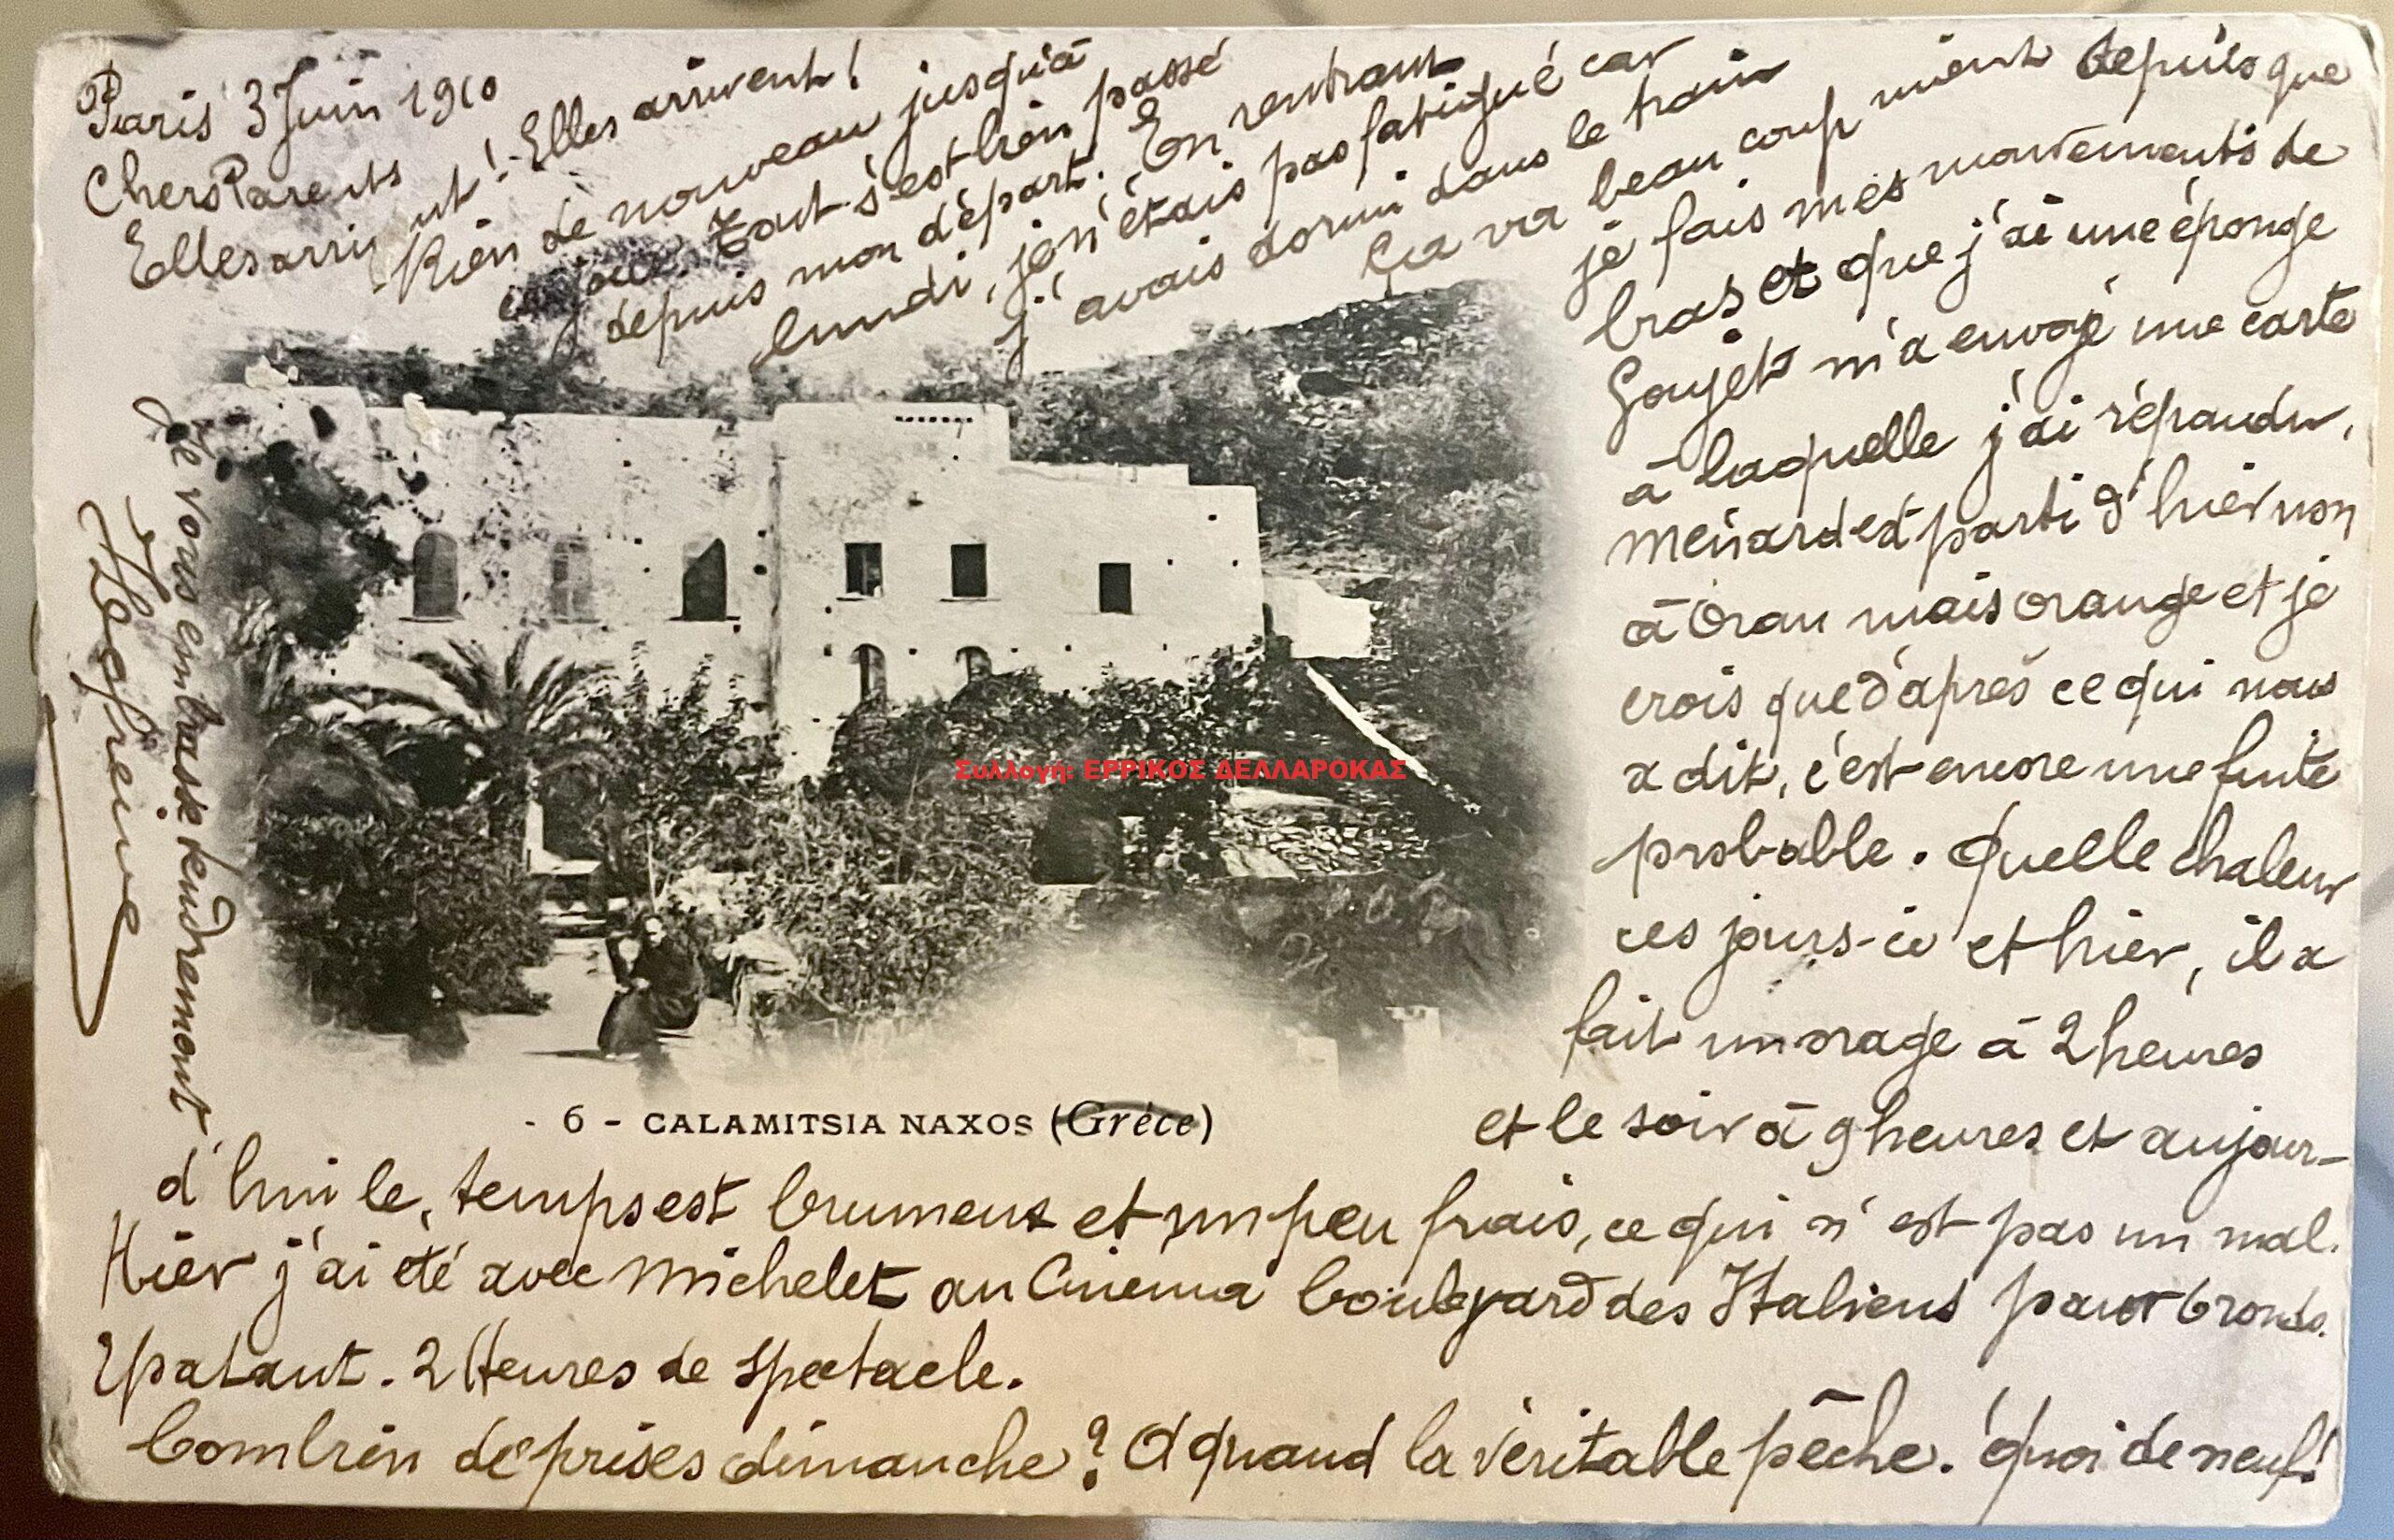 Paris 3 Juin 1910
Chers Parents
Elles arriv nt! - Elles arrivent!
Rien de nouveau jusqu'à
ce jour. Tout s'est bien passé
depuis mon départ. En rentrant
lundi, je n'étais pas fatigué car
j'avais dormi dans le train
Ça va beaucoup mieux depuis que
je fais mes mouvements de
bras et que j'ai une éponge
Goujet m'a envoyé une carte
à laquelle j'ai répondu,
Ménard est parti d'hier non
à Oran mais orange et je
crois que d'après ce qui nous
a dit, c'est encore une fuite
probable. Quelle chaleur
ces jours-ci et hier, il a
fait un orage à 2 heures
et le soir à 9 heures et aujour-
d'hui le temps est brumeux et un peu frais, ce qui n'est pas un mal.
Hier j'ai été avec Michelet au Cinema boulevard des Italiens pour 6 ronds.
Epatant. 2 Heures de spectacle.
Combien de prises dimanche? A quand la véritable pêche. quoi de neuf!
Je vous embrasse tendrement
- 6 - CALAMITSIA NAXOS (Grèce)
Συλλογή: ΕΡΡΙΚΟΣ ΔΕΛΛΑΡΟΚΑΣ